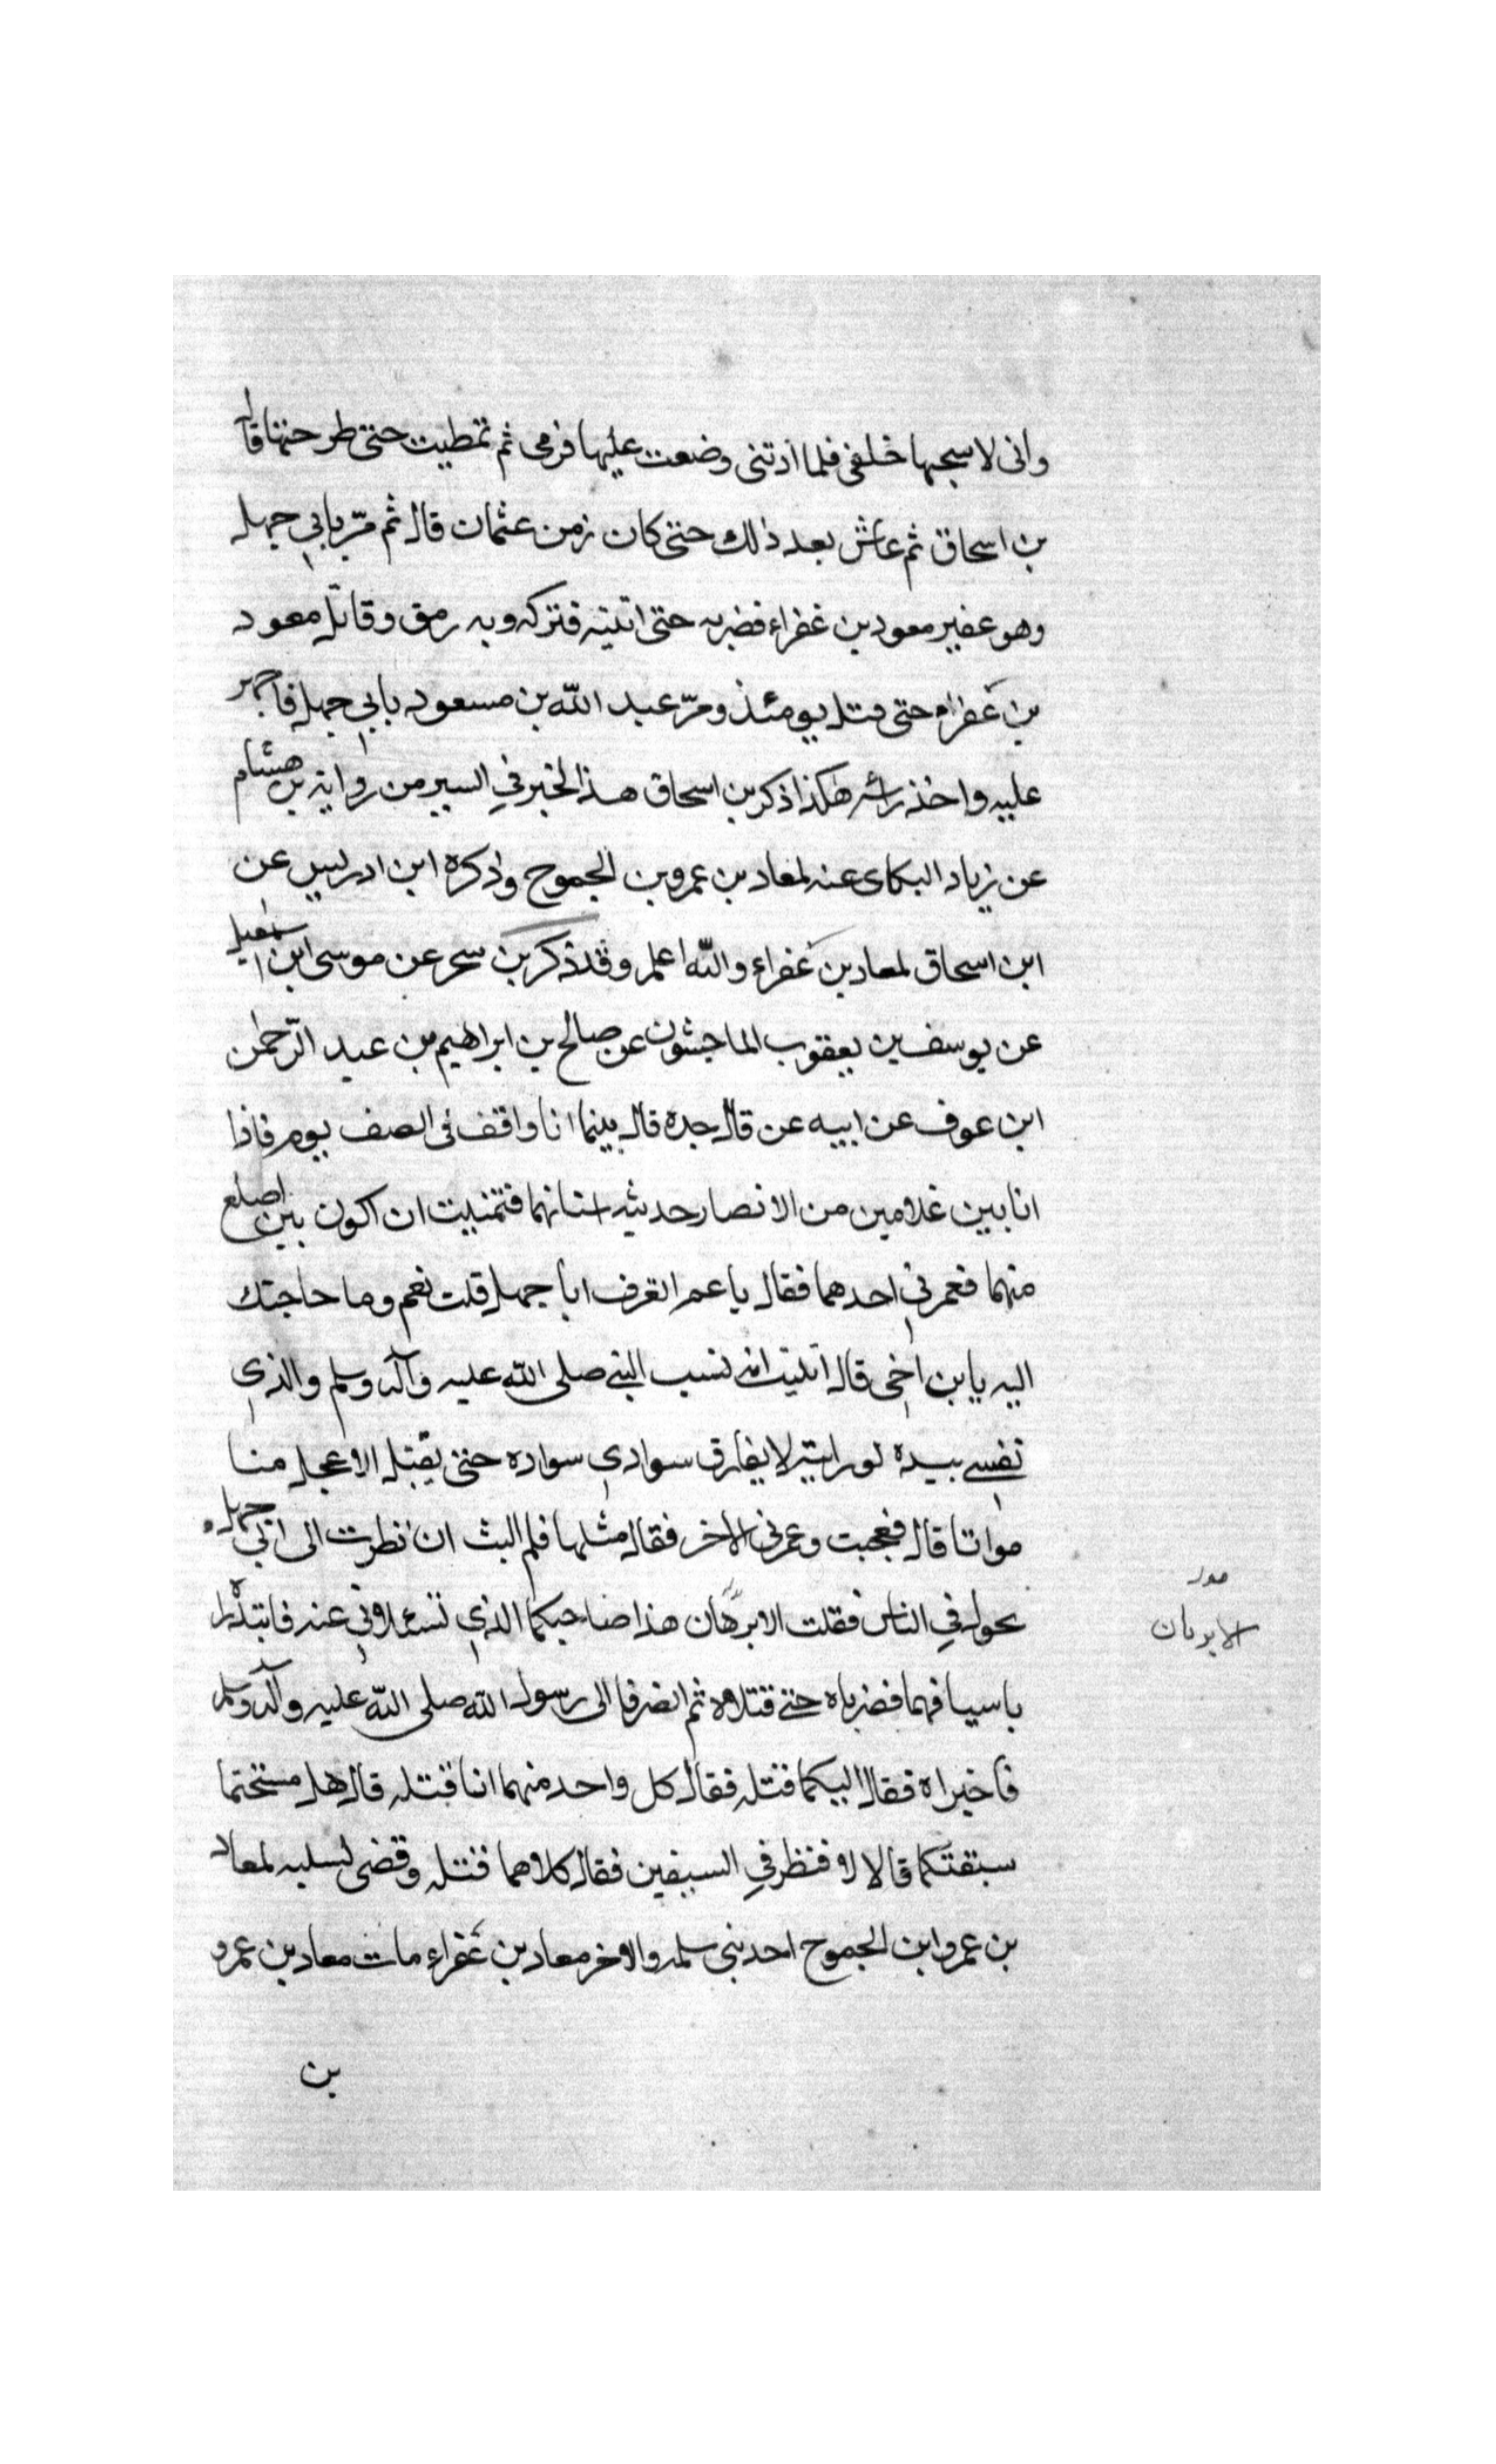 وانى لاسجبها خلفى فلما اذتنى وضعت عليها قرمى ثم تمطيت حتى طرحتها قال
بن اسحاق ثم عاش بعد ذلك حتى كان زمن عثمان قال ثم مرّ بابي جهل
وهو عفير معود بن غفراء فضربه حتى اتيته فتركه وبه رمق وقاتل معود
بن عفراء حتى قتل يومئذ ومرّ عبد الله بن مسعود بابي جهل فاجهر
عليه واخذ راسه هكذا ذكر بن اسحاق هذا الخبر في السير من رواية بن هشام
عن زياد البكاى عنه لمعاد بن عمرو بن الجموح وذكره ابن ادريس عن
ابن اسحاق لمعاد بن عفراء والله اعلم وقد ذكر بن سحر عن موسى ابن اسمعيل
عن يوسف بن يعقوب الماجشون عن صالح بن ابراهيم بن عبد الرّحمن
ابن عوف عن ابيه عن قال جده قال بينما انا واقف فى الصف يوم فاذا
انا بين غلامين من الانصار حديثه اسنانهما فتمنيت ان اكون بين اصلع
منهما فغمرني احدهما فقال يا عم اتعرف ابا جهل قلت نعم وما حاجتك
اليه يابن اخي قال انه نسب النبى صلى الله عليه وآله وسلم والذي
نفسى بيده لو رايته لا يفارق سوادي سواده حتى يقتل الاعجل منا
مواتا قال فعجبت وغمرني الاخر فقال مثلها فلم البث ان نظرت الى ابي جهل
يحول في الناس فقلت الا برهان هذا صاحبكما الذي تسئلاني عنه فابتدرا
باسيافهما فضرباه حتى قتلاه ثم انصرفا الى رسول الله صلى الله عليه وآله وسلم
فاخبراه فقال ايكما قتله فقال كل واحد منهما انا قتلته قال هل مستحتما
سيفتكما قالا لا فنظر في السيفين فقال كلاهما قتله وقضى لسلبه لمعاد
بن عمرو ابن الجموح احد بني سلمه والاخر معاد بن عفراء مات معاد بن عمرو
بن
الا يريان